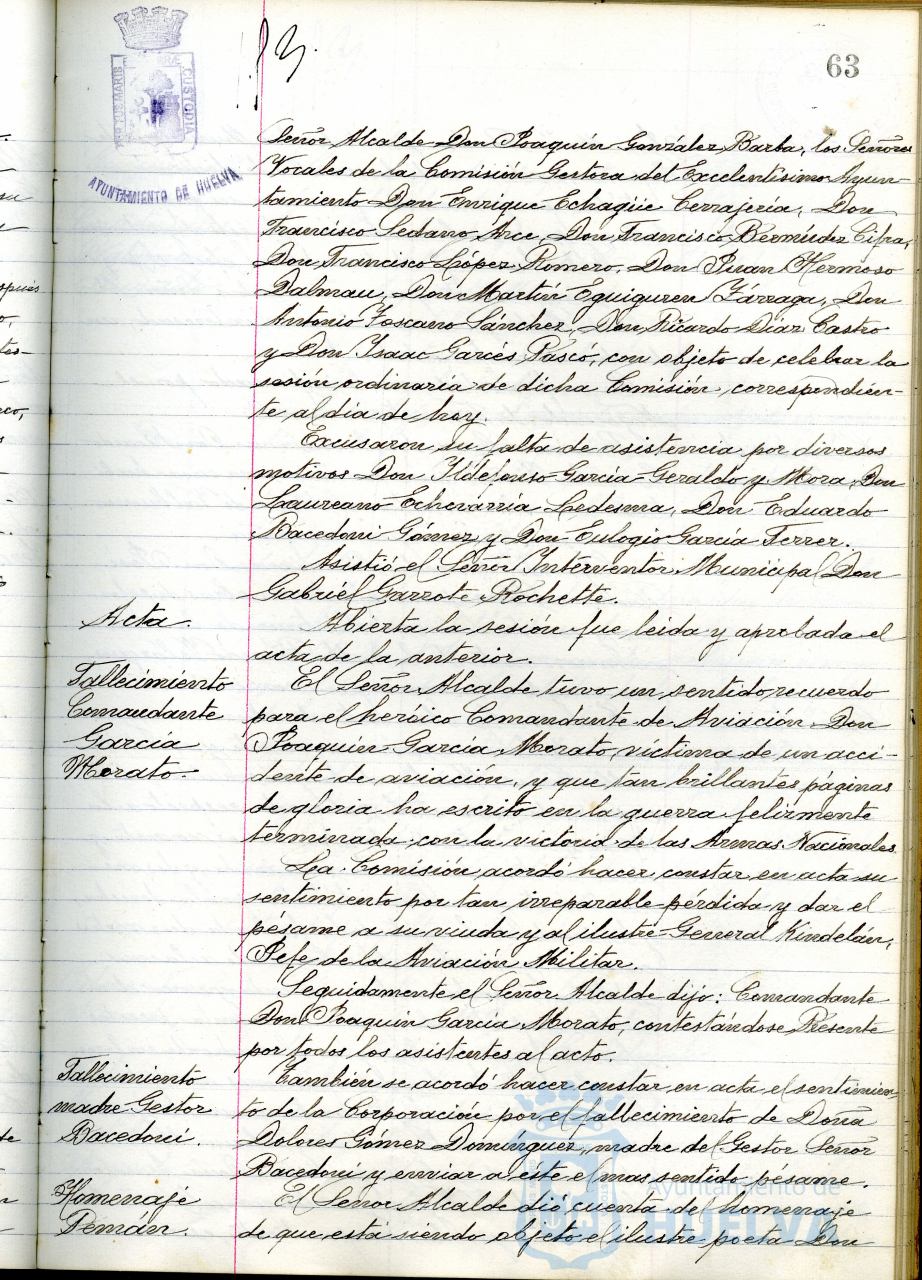 63
PORTUS MARIS
CUSTODIA
AYUNTAMIENTO DE HUELVA
Señor Alcalde Don Joaquín González Barba, los Señores
Vocales de la Comisión Gestora del Excelentísimo Ayun-
tamiento Don Enrique Echagüe Cerrajería, Don
Francisco Sedano Arce, Don Francisco Bermúdez Cifra,
Don Francisco López Romero, Don Juan Hermoso
Dalmau, Don Martín Eguiguren Yárzaga, Don
Antonio Toscano Sánchez, Don Ricardo Díaz Castro
y Don Isaac Garcés Pascó, con objeto de celebrar la
sesión ordinaria de dicha Comisión, correspondien-
te al dia de hoy.
Excusaron su falta de asistencia por diversos
motivos Don Ildefonso García-Geraldo y Mora, Don
Laureano Echevarría Ledesma, Don Eduardo
Bacedoni Gómez y Don Eulogio García Ferrer.
Asistió el Señor Interventor Municipal Don
Gabriel Garrote Rochette.
Acta.
Abierta la sesión fue leida y aprobada el
acta de la anterior.
Fallecimiento
Comandante
García
Morato.
El Señor Alcalde tuvo un sentido recuerdo
para el heróico Comandante de Aviación Don
Joaquín García Morato, víctima de un acci-
dente de aviación, y que tan brillantes páginas
de gloria ha escrito en la guerra felizmente
terminada con la victoria de las Armas Nacionales.
La Comisión acordó hacer constar en acta su
sentimiento por tan irreparable pérdida y dar el
pésame a su viuda y al ilustre General Kindelán,
Jefe de la Aviación Militar.
Seguidamente el Señor Alcalde dijo: Comandante
Don Joaquín García Morato, contestándose Presente
por todos los asistentes al acto.
Fallecimiento
madre Gestor
Bacedoni.
También se acordó hacer constar en acta el sentimien-
to de la Corporación por el fallecimiento de Doña
Dolores Gómez Domínguez, madre del Gestor Señor
Bacedoni y enviar a éste el mas sentido pésame.
Homenaje
Pemán.
El Señor Alcalde dió cuenta del homenaje
de que está siendo objeto el ilustre poeta Don
Ayuntamiento de
HUELVA